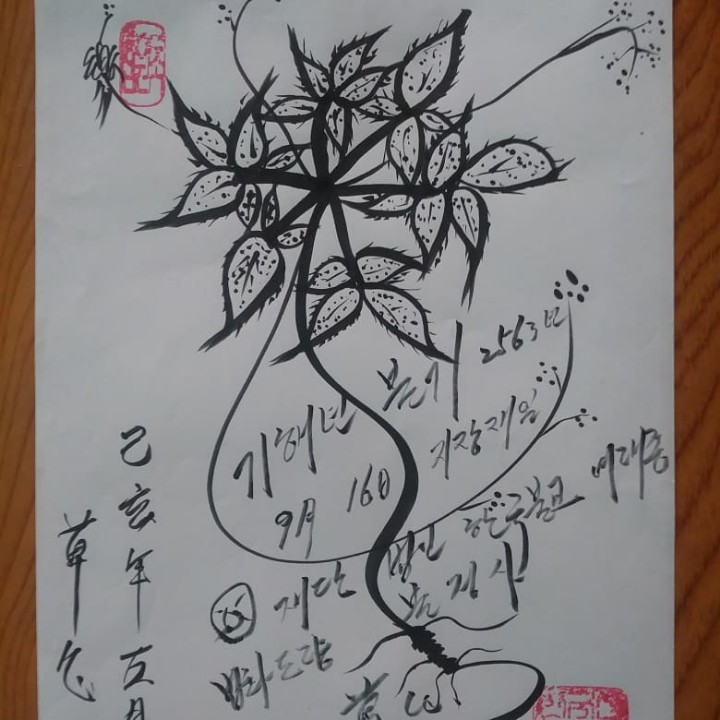 기해년 불기 2563년
9月 16日 지장재일
재단 법인 한국불교 미래종
정사
법화도량
己亥年五月
草